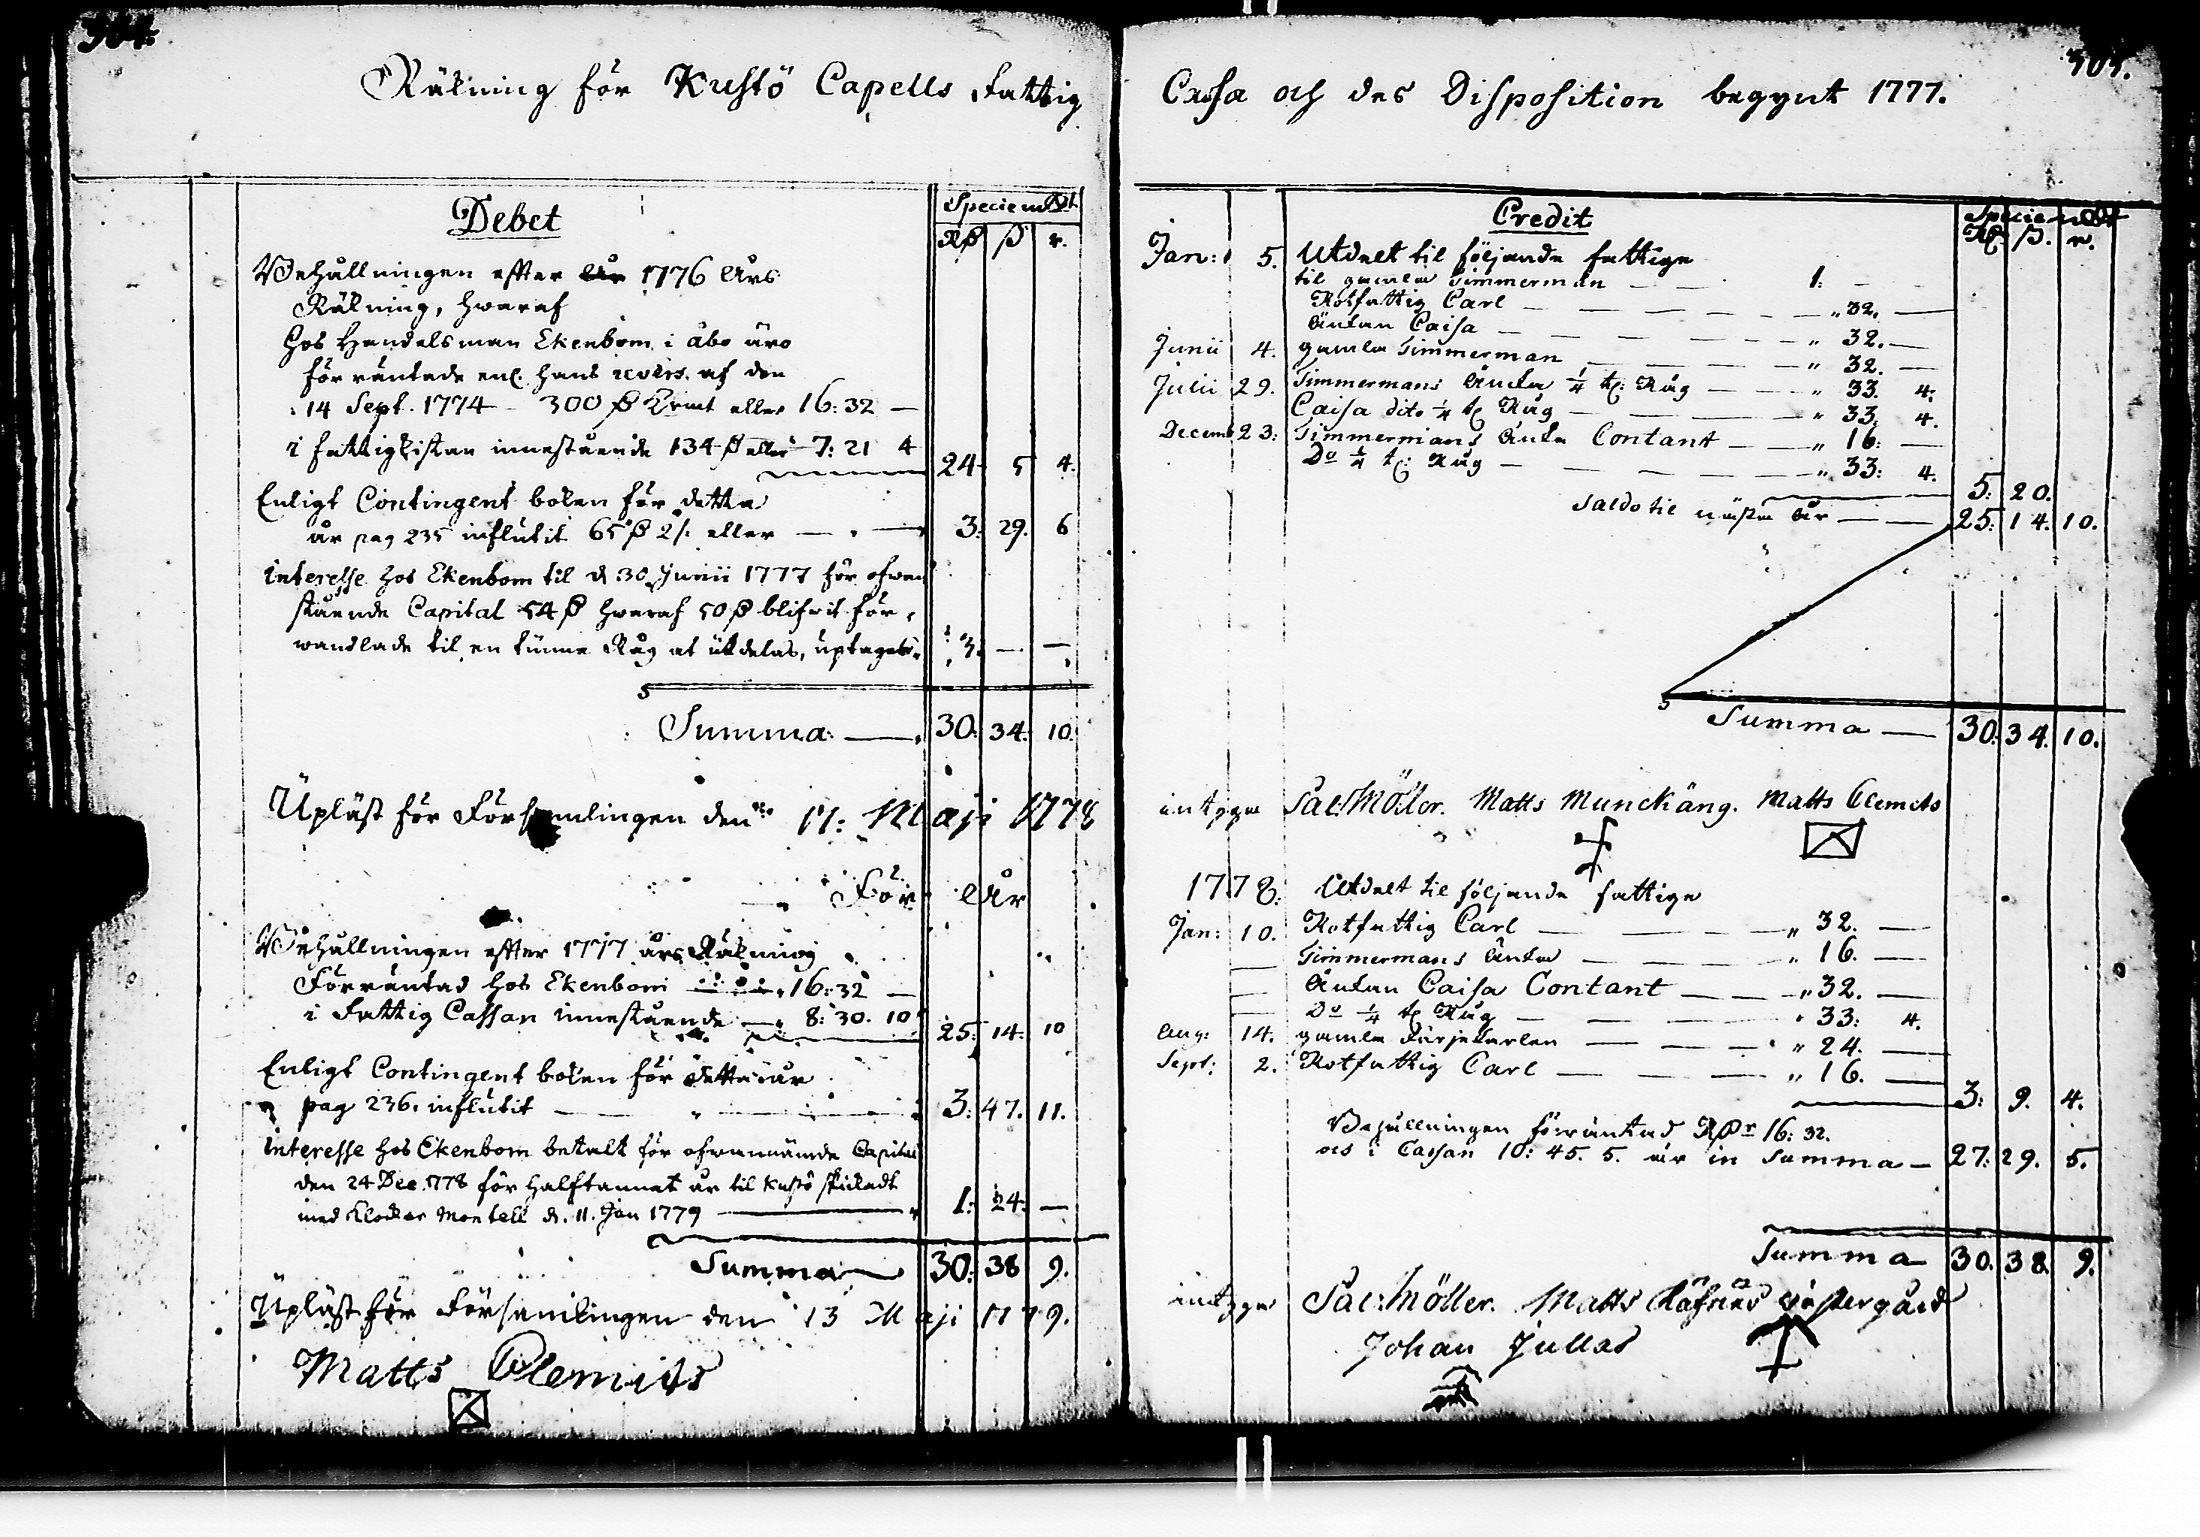 304.
Räkning för Kustö Capells Fattig
Debet
Specie
R₰ ß r.
Behållningen effter 1776 Års
Räkning, hwaraf
Hos Handelsman Ekenbom i åbo äro
förräntade enl. hans revers. af den
14 Sept. 1774 300 ₰ Kmt eller 16: 32 —
i fattigkistan innestående 134 ₰ eller 7: 21 4
24 5 4.
Enligt Contingent boken för detta
år pag 235 influtit 65 ₰ 2/: eller — " — 3: 29. 6
interesse hos Ekenbom til d. 30 Junii 1777 för ofwan
stående Capital 54 ₰ hwaraf 50 ₰ blifwit för-
wandlade til en tunna Råg at utdelas, uptages 3. — —
Summa — 30. 34. 10.
Upläst för Församlingen den 17: Maji 1778
För År
Behållningen effter 1777 års Räkning
Förräntad hos Ekenbom 16: 32 —
i Fattig Cassan innestående — 8: 30. 10
25: 14: 10
Enligt Contingent boken för detta år
pag 236. influtit — " — 3: 47. 11.
interesse hos Ekenbom betalt för ofwannämde Capital
den 24 Dec. 1778 för halftannat år til Kustö skickadt
med Klockar Montell d. 11. Jan 1779 — 1: 24: —
Summa 30: 38 9.
Upläst för Församlingen den 13 Maji 1779.
Matts Clemits
305.
Cassa och des Disposition begynt 1777.
Credit
Specie
R₰ ß. r.
Jan: 5. Utdelt til följande fattige
til gamla Timmerman — — 1: — —
Rotfattig Carl — — — " 32. —
Änkan Caisa — — — " 32. —
Junii 4. gamla Timmerman — — — " 32. —
Julii 29. Timmermans Änka ¼ t: Råg — — " 33. 4.
Caisa dito ¼ t: Råg — — — " 33. 4.
Decemb 23: Timmermans Änka Contant — — " 16: —
Do ¼ t: Råg — — — " 33: 4.
5: 20.
Saldo til nästa År — — 25: 14. 10.
Summa — 30: 34. 10.
intyga Sal: Möller. Matts Munckäng. Matts Clemets
1778: Utdelt til följande fattige
Jan: 10. Rotfattig Carl — — — " 32. —
— Timmermans Änka — — — " 16. —
— Änkan Caisa Contant — — — " 32. —
— Do ¼ t: Råg — — — " 33: 4.
Aug: 14. gamla Färjekarlen — — — " 24. —
Sept: 2. Rotfattig Carl — — — " 16. —
3: 9. 4.
Behållningen förräntad R₰r 16: 32.
och i Cassan 10: 45. 5. är in Summa — 27: 29. 5.
Summa — 30. 38. 9.
intyga Sal: Möller. Matts Västergård
Johan Jullas